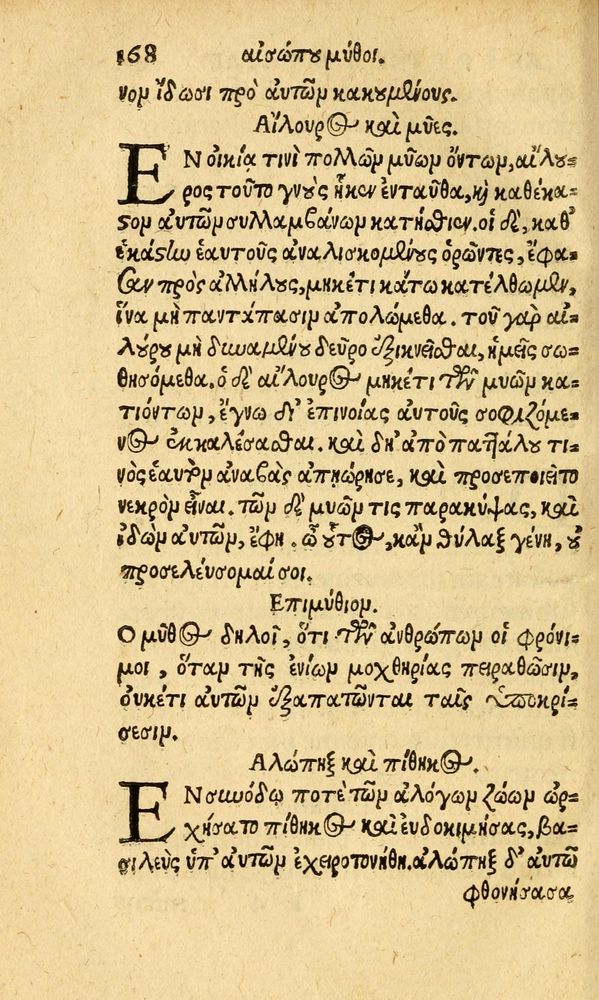 168 αἰσώπου μύθοι.
νον ἴδωσι πρὸ αὐτῶν κακουμένους.
Αἴλουρος καὶ μῦες.
ΕΝ οἰκίᾳ τινὶ πολλῶν μυῶν ὄντων, αἴλου-
ρος τοῦτο γνοὺς ἧκεν ἐνταῦθα, καὶ καθέκα-
στον αὐτῶν συλλαμβάνων κατήσθιεν. οἱ δὲ, καθ’
ἑκάστην ἑαυτοὺς ἀναλισκομένους ὁρῶντες, ἔφα-
σαν πρὸς ἀλλήλους, μηκέτι κάτω κατέλθωμεν,
ἵνα μὴ παντάπασιν ἀπολώμεθα. τοῦ γὰρ αἰ-
λούρου μὴ δυναμένου δεῦρο ἐξικνεῖσθαι, ἡμεῖς σω-
θησόμεθα. ὁ δὲ αἴλουρος μηκέτι τῶν μυῶν κα-
τιόντων, ἔγνω δι’ ἐπινοίας αὐτοὺς σοφιζόμε-
νος ἐκκαλέσασθαι. καὶ δὴ ἀπὸ παττάλου τι-
νὸς ἑαυτὸν ἀναβὰς ἀπῃώρησε, καὶ προσεποιεῖτο
νεκρὸν εἶναι. τῶν δὲ μυῶν τις παρακύψας, καὶ
ἰδὼν αὐτῶν, ἔφη. ὦ οὗτος, κἂν θύλαξ γένῃ, οὐ
προσελεύσομαί σοι.
Επιμύθιον.
Ο μῦθος δηλοῖ, ὅτι τῶν ἀνθρώπων οἱ φρόνι-
μοι, ὅταν τῆς ἐνίων μοχθηρίας πειραθῶσιν,
οὐκέτι αὐτῶν ἐξαπατῶνται ταῖς ὑποκρί-
σεσιν.
Αλώπηξ καὶ πίθηκος.
ΕΝ συνόδῳ ποτὲ τῶν ἀλόγων ζώων ὠρ-
χήσατο πίθηκος καὶ εὐδοκιμήσας, βα-
σιλεὺς ὑπ’ αὐτῶν ἐχειροτονήθη. ἀλώπηξ δ’ αὐτῷ
φθονήσασα